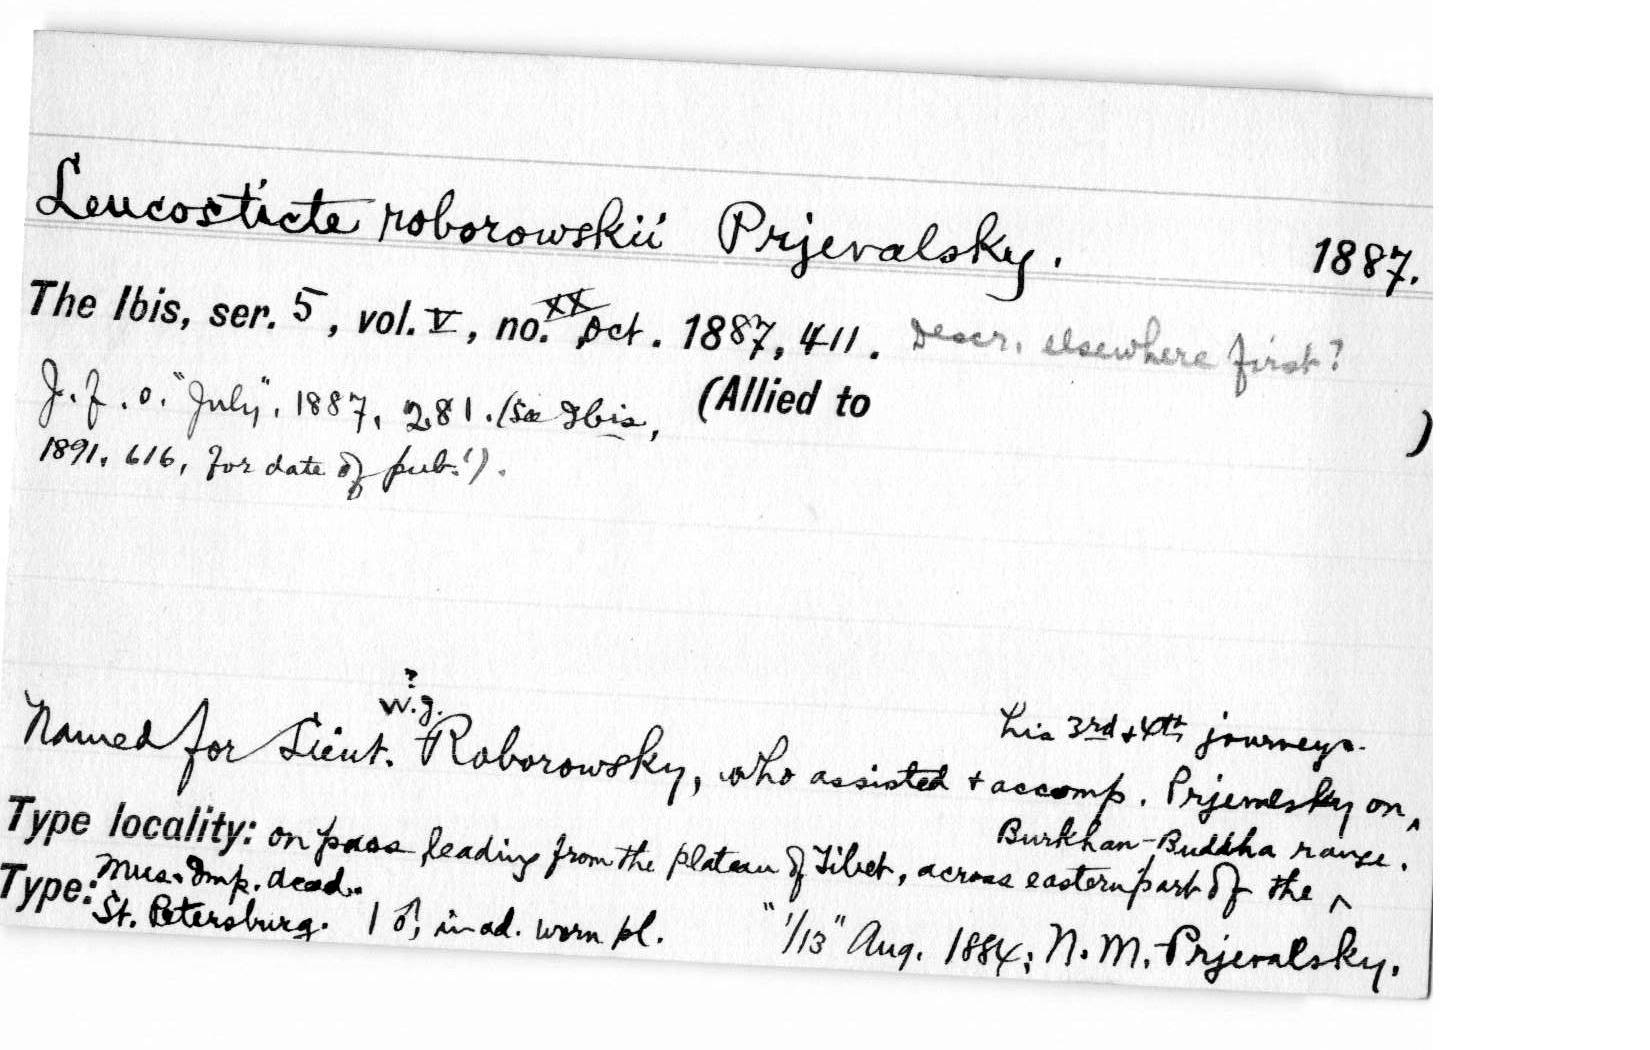 Leucosticte roborowskii Prjevalsky. 1887.
The Ibis, ser. 5, vol. V, no. XX, Oct. 1887, 411. Descr. elsewhere first?
J. f. O. "July", 1887, 281. (See Ibis, (Allied to )
1891, 616, for date of pub.!).
?
W.J.
his 3rd + 4th journeys.
Named for Lieut. Roborowsky, who assisted + accomp. Prjevalsky on ^
Burkhan-Buddha range.
Type locality: on pass leading from the plateau of Tibet, across eastern part of the ^
Type: Mus. Imp. Acad.
St. Petersburg. 1 ♂, in ad. worn pl. "1/13" Aug. 1884; N. M. Prjevalsky.